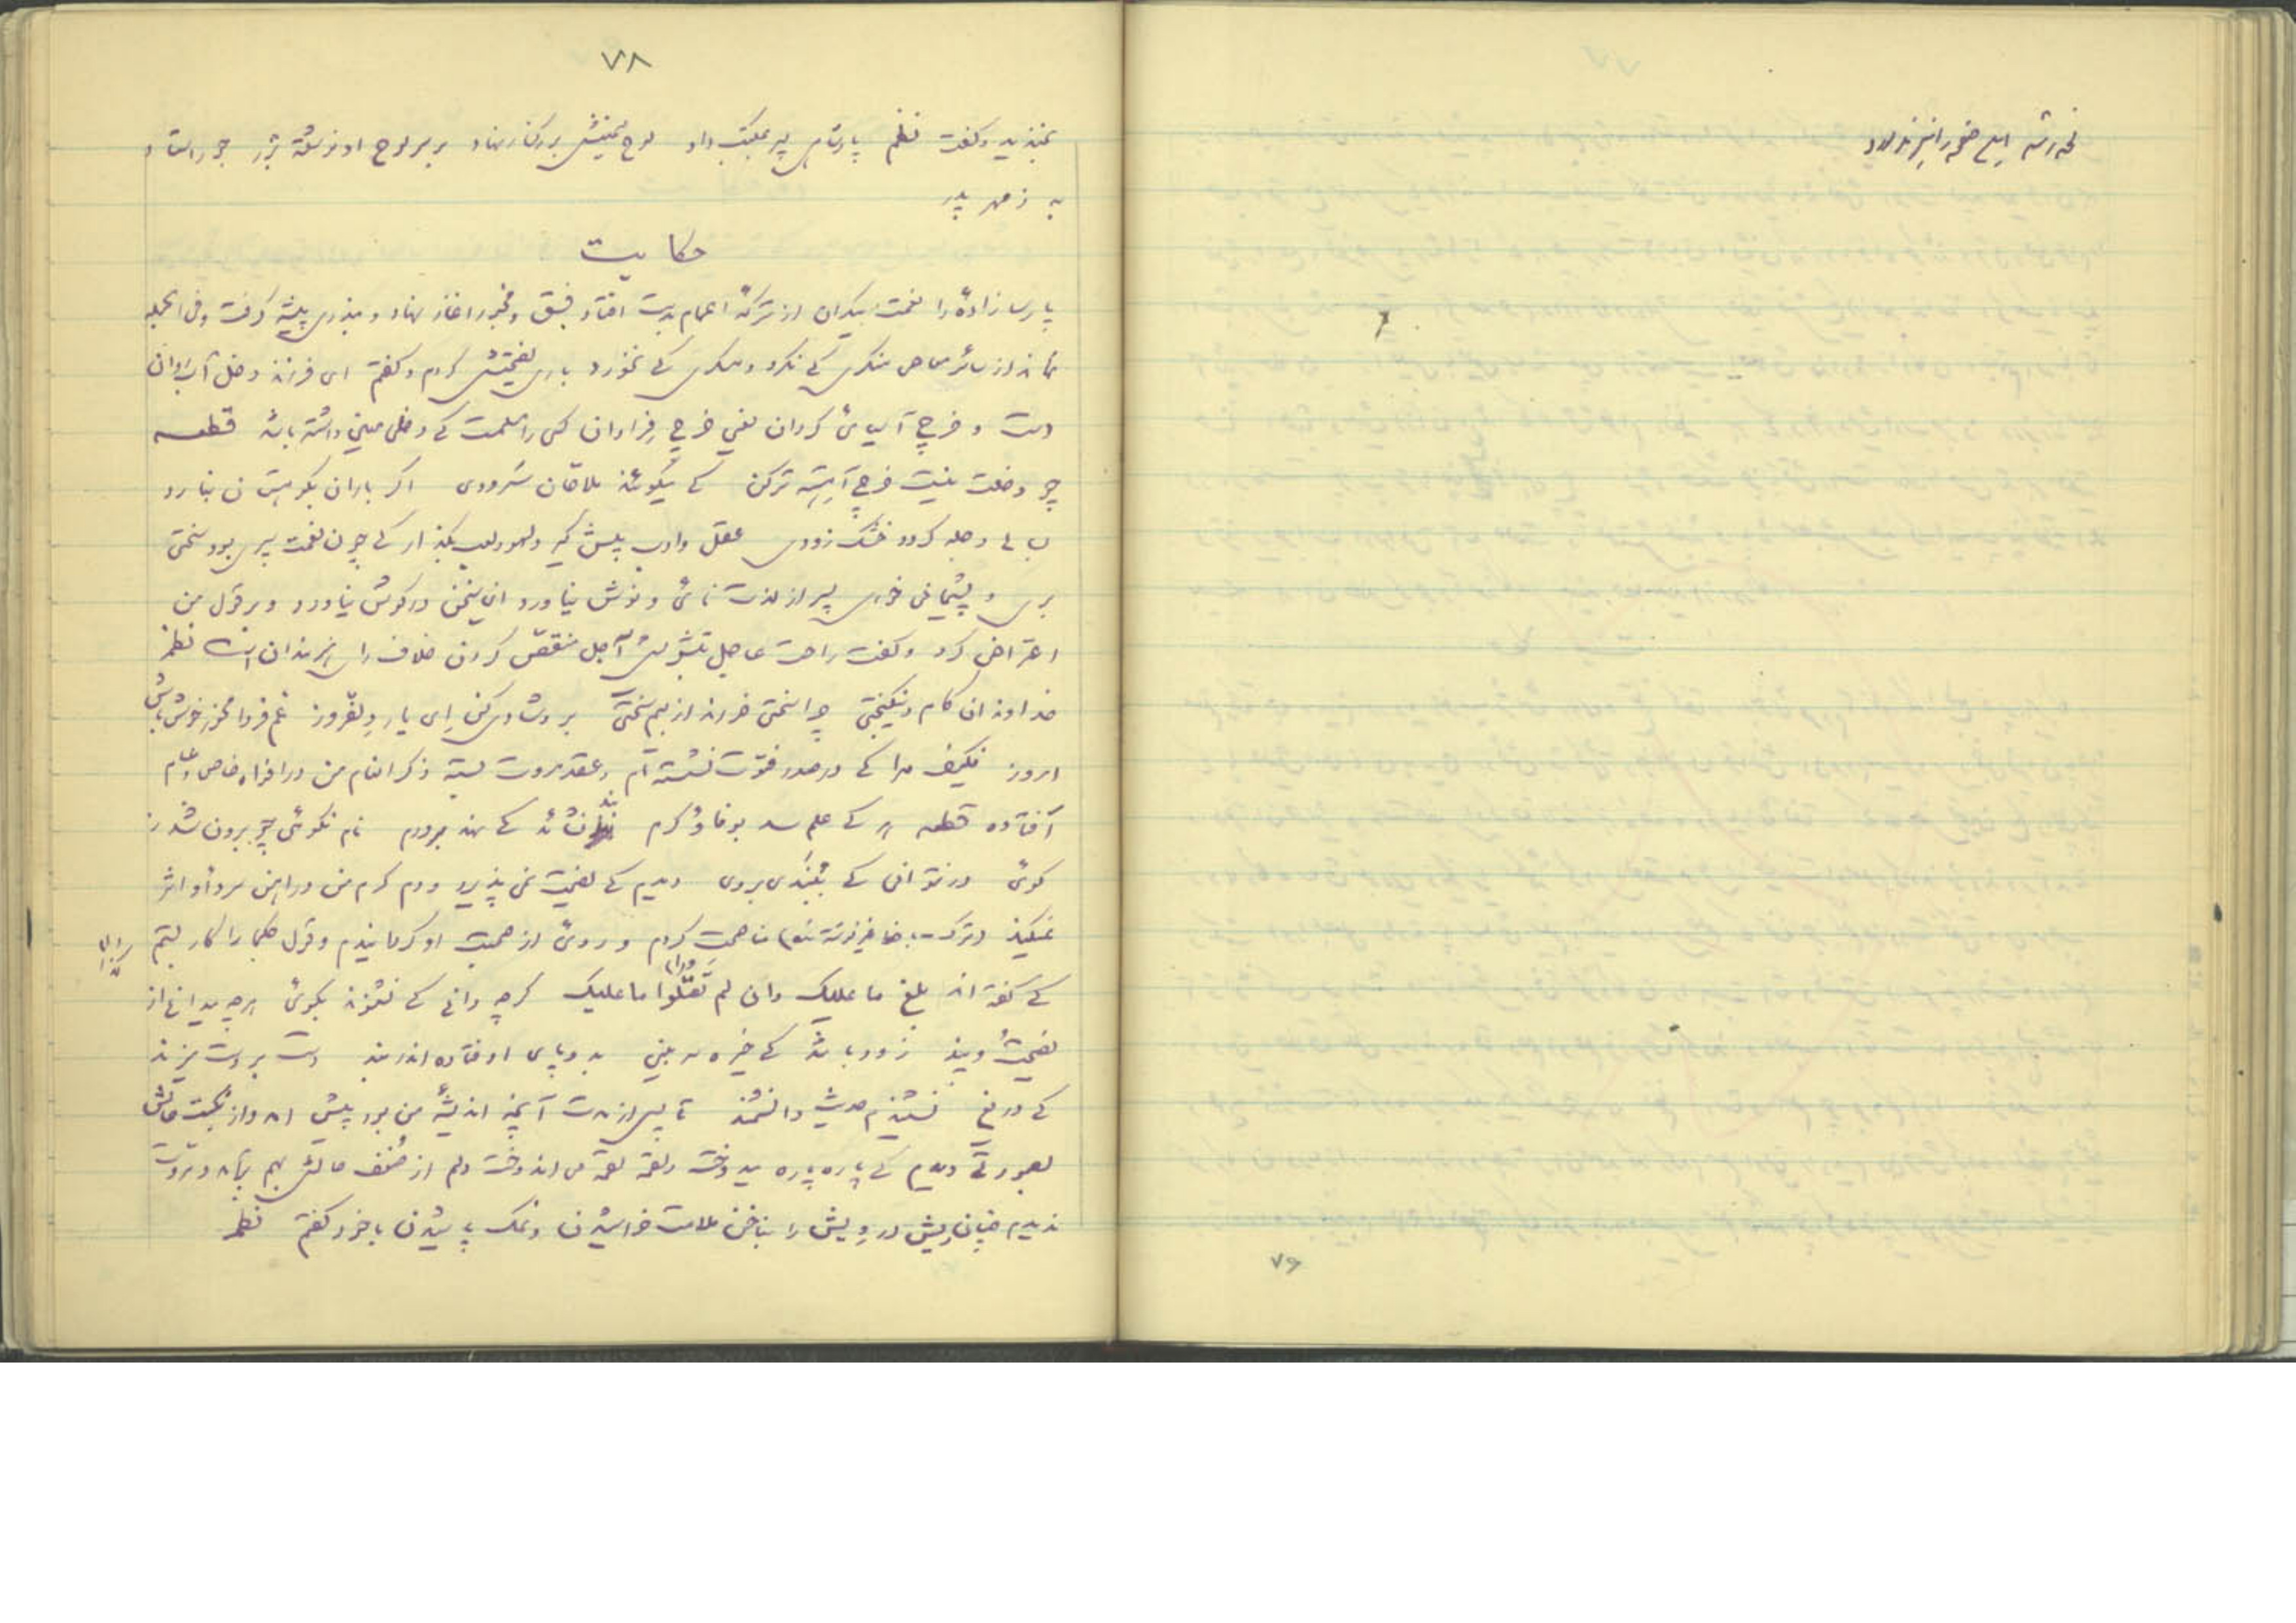 ٧٨
بخندید و گفت نظم پادشاهی پسر بمکتب داد لوح سیمینش بر کنار نهاد بر سر لوح او نوشته بزر جور استاد
به ز مهر پدر
حکایت
پارسا زادهٔ را نعمت بیکران از ترکهٔ اعمام بدست افتاد فسق و فجور آغاز نهاد و مبذری پیشه گرفت و فی الجمله
نماند از سائر معاصی منکری کے نکرد و مسکری کے نخورد باری نصیحتش کردم و گفتم ای فرزند دخل آب روان
است و خرج آسیای گردان یعنی خرج فراوان کسی را مسلمست کے دخل معین داشته باشد قطعه
چو دخلت نیست خرج آهسته ترکن کے میگویند ملاحان سرودی اگر باران بکوهستان نبارد
بسالے دجله گردد خشک رودی عقل و ادب پیش گیر و لهو و لعب بگذار کے چون نعمت سپری بود سختی
بری و پشیمانی خوری پسر از لذت نای و نوش نیاورد این سخن در گوش نیاورد و بر قول من
اعتراض کرد و گفت راحت عاجل بتشویش آجل منغص کردن خلاف رای خردمندان است نظم
خداوندان کام و نیکبختی چرا سختی خورند از بیم سختی برو شادی کن ای یار دلفروز غم فردا نخور خوش باش
امروز فکیف مرا کے در صدر فتوت نشسته ام و عقد مروت بسته ذکر انعام من در افواه خاص و عام
افتاده قطعه هر کے علم شد بوفا و کرم بند نشاید کے نهد بر درم نام نکوئی چو برون شد ز
کوی در نتوانی کے ببندی بروی دیدم کے نصیحت نمی پذیرد و دم گرم من در آهن سرد او اثر
نمیکند ترک مناصحت کردم و روی از صحبت او گردانیدم و قول حکما را کار بستم
کے گفته اند بلغ ما علیک وان لم تقبلوا ما علیک گرچه دانی کے نشنوند بگوی هرچه میدانی از
نصیحت و پند زود باشد کے خیره سر بینی بدو پای اوفتاده اندر بند دست بر دست میزند
کے دریغ نشنیدم حدیث دانشمند تا پس از مدت آنچه اندیشهٔ من بود پیش آمد و از نکبت حالش
بصورتے دیدم کے پاره پاره میدوخت و لقمه لقمه می اندوخت دلم از ضعف حالش بهم بر آمد و مروت
ندیدم چنان ریش درویش را بناخن ملامت خراشیدن و نمک پاشیدن با خود گفتم نظم
٧٩